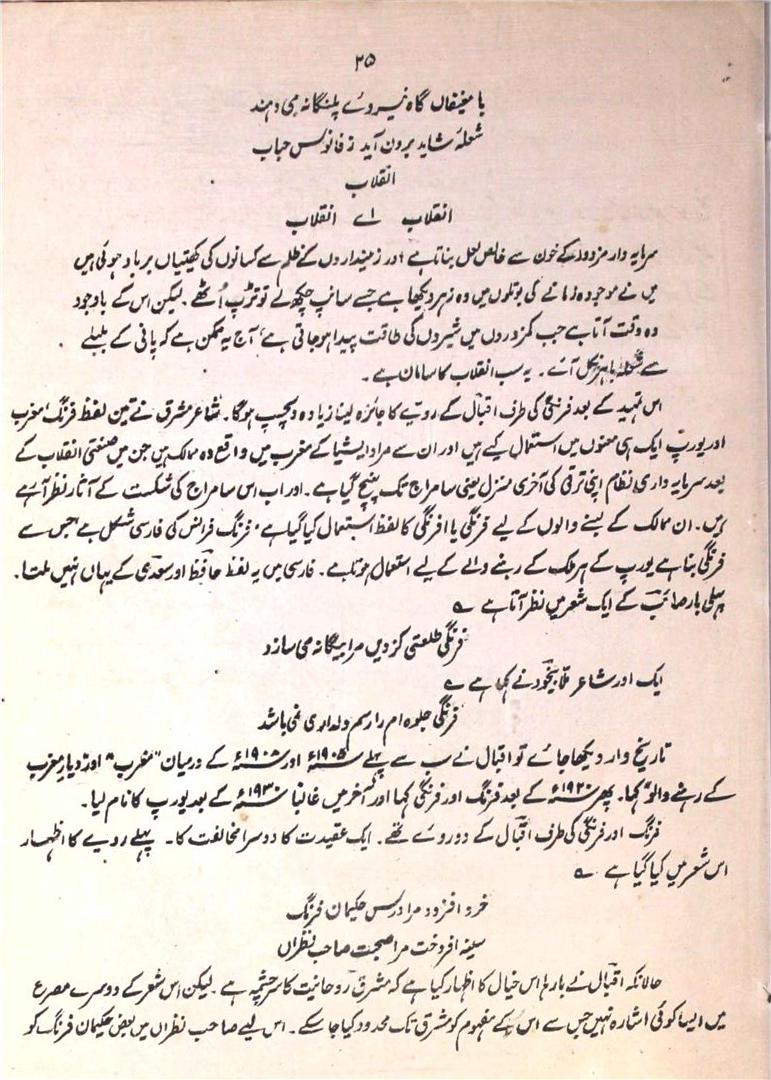 ۲۵
با ضعیفاں گاہ نیروے پلنگانہ می دہند
شعلۂ شاید برون آید ز فانوس حباب
انقلاب
انقلاب اے انقلاب
سرمایہ دار مزدور کے خون سے خالص لعل بناتا ہے اور زمینداروں کے ظلم سے کسانوں کی کھیتیاں برباد ہوئی ہیں
میں نے موجودہ زمانے کی بوتلوں میں وہ زہر دیکھا ہے جسے سانپ چکھ لے تو تڑپ اُٹھے۔ لیکن اس کے باوجود
وہ وقت آتا ہے جب کمزوروں میں شیروں کی طاقت پیدا ہو جاتی ہے، آج یہ ممکن ہے کہ پانی کے بلبلے
سے شعلہ باہر نکل آئے۔ یہ سب انقلاب کا سامان ہے۔
اس تمہید کے بعد فرنگی کی طرف اقبال کے رویے کا جائزہ لینا زیادہ دلچسپ ہوگا۔ شاعر مشرق نے تین لفظ فرنگ، مغرب
اور یورپ ایک ہی معنوں میں استعمال کیے ہیں اور ان سے مراد ایشیا کے مغرب میں واقع وہ ممالک ہیں جن میں صنعتی انقلاب کے
بعد سرمایہ داری نظام اپنی ترقی کی آخری منزل یعنی سامراج تک پہنچ گیا ہے۔ اور اب اس سامراج کی شکست کے آثار نظر آرہے
ہیں۔ ان ممالک کے بسنے والوں کے لیے فرنگی یا افرنگی کا لفظ استعمال کیا گیا ہے، فرنگ فرانس کی فارسی شکل ہے جس سے
فرنگی بنا ہے یورپ کے ہر ملک کے رہنے والے کے لیے استعمال ہوتا ہے۔ فارسی میں یہ لفظ حافظ اور سعدی کے یہاں نہیں ملتا۔
پہلی بار صائب کے ایک شعر میں نظر آتا ہے ؎
فرنگی طلعتی کز دیں مرا بیگانہ می سازد
ایک اور شاعر ملا بیخود نے کہا ہے ؎
فرنگی جلوہ ام را رسم دلداری نمی باشد
تاریخ وار دیکھا جائے تو اقبال نے سب سے پہلے ۱۹۰۵ء اور ۱۹۰۸ء کے درمیان "مغرب" اور "دیارِ مغرب
کے رہنے والو" کہا۔ پھر ۱۹۲۰ء کے بعد فرنگ اور فرنگی کہا اور آخر میں غالباً ۱۹۳۰ء کے بعد یورپ کا نام لیا۔
فرنگ اور فرنگی کی طرف اقبال کے دو رویے تھے۔ ایک عقیدت کا دوسرا مخالفت کا۔ پہلے رویے کا اظہار
اس شعر میں کیا گیا ہے ؎
خرد افزود مرا درس حکیمان فرنگ
سینہ افروخت مرا صحبت صاحب نظراں
حالانکہ اقبال نے بارہا اس خیال کا اظہار کیا ہے کہ مشرق روحانیت کا سرچشمہ ہے۔ لیکن اس شعر کے دوسرے مصرع
میں ایسا کوئی اشارہ نہیں جس سے اس کے مفہوم کو مشرق تک محدود کیا جا سکے۔ اس لیے صاحب نظراں میں بعض حکیمان فرنگ کو